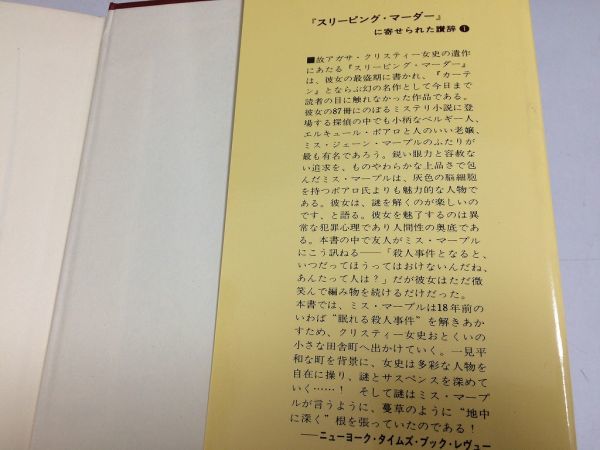 『スリーピング・マーダー』
に寄せられた讃辞❶
■故アガサ・クリスティー女史の遺作
にあたる『スリーピング・マーダー』
は、彼女の最盛期に書かれ、『カーテ
ン』とならぶ幻の名作として今日まで
読者の目に触れなかった作品である。
彼女の87冊にのぼるミステリ小説に登
場する探偵の中でも小柄なベルギー人、
エルキュール・ポアロと人のいい老嬢、
ミス・ジェーン・マープルのふたりが
最も有名であろう。鋭い眼力と容赦な
い追求を、ものやわらかな上品さで包
んだミス・マープルは、灰色の脳細胞
を持つポアロ氏よりも魅力的な人物で
ある。彼女は、謎を解くのが楽しいので
す、と語る。彼女を魅了するのは異
常な犯罪心理であり人間性の奥底であ
る。本書の中で友人がミス・マープル
にこう訊ねる——「殺人事件となると、
いつだってほうってはおけないんだね、
あんたって人は？」だが彼女はただ微
笑んで編み物を続けるだけだった。
本書では、ミス・マープルは18年前の
いわば“眠れる殺人事件”を解きあか
すため、クリスティー女史おとくいの
小さな田舎町へ出かけていく。一見平
和な町を背景に、女史は多彩な人物を
自在に操り、謎とサスペンスを深めて
いく……！　そして謎はミス・マープ
ルが言うように、蔓草のように“地中
に深く”根を張っていたのである！
——ニューヨーク・タイムズ・ブック・レヴュー